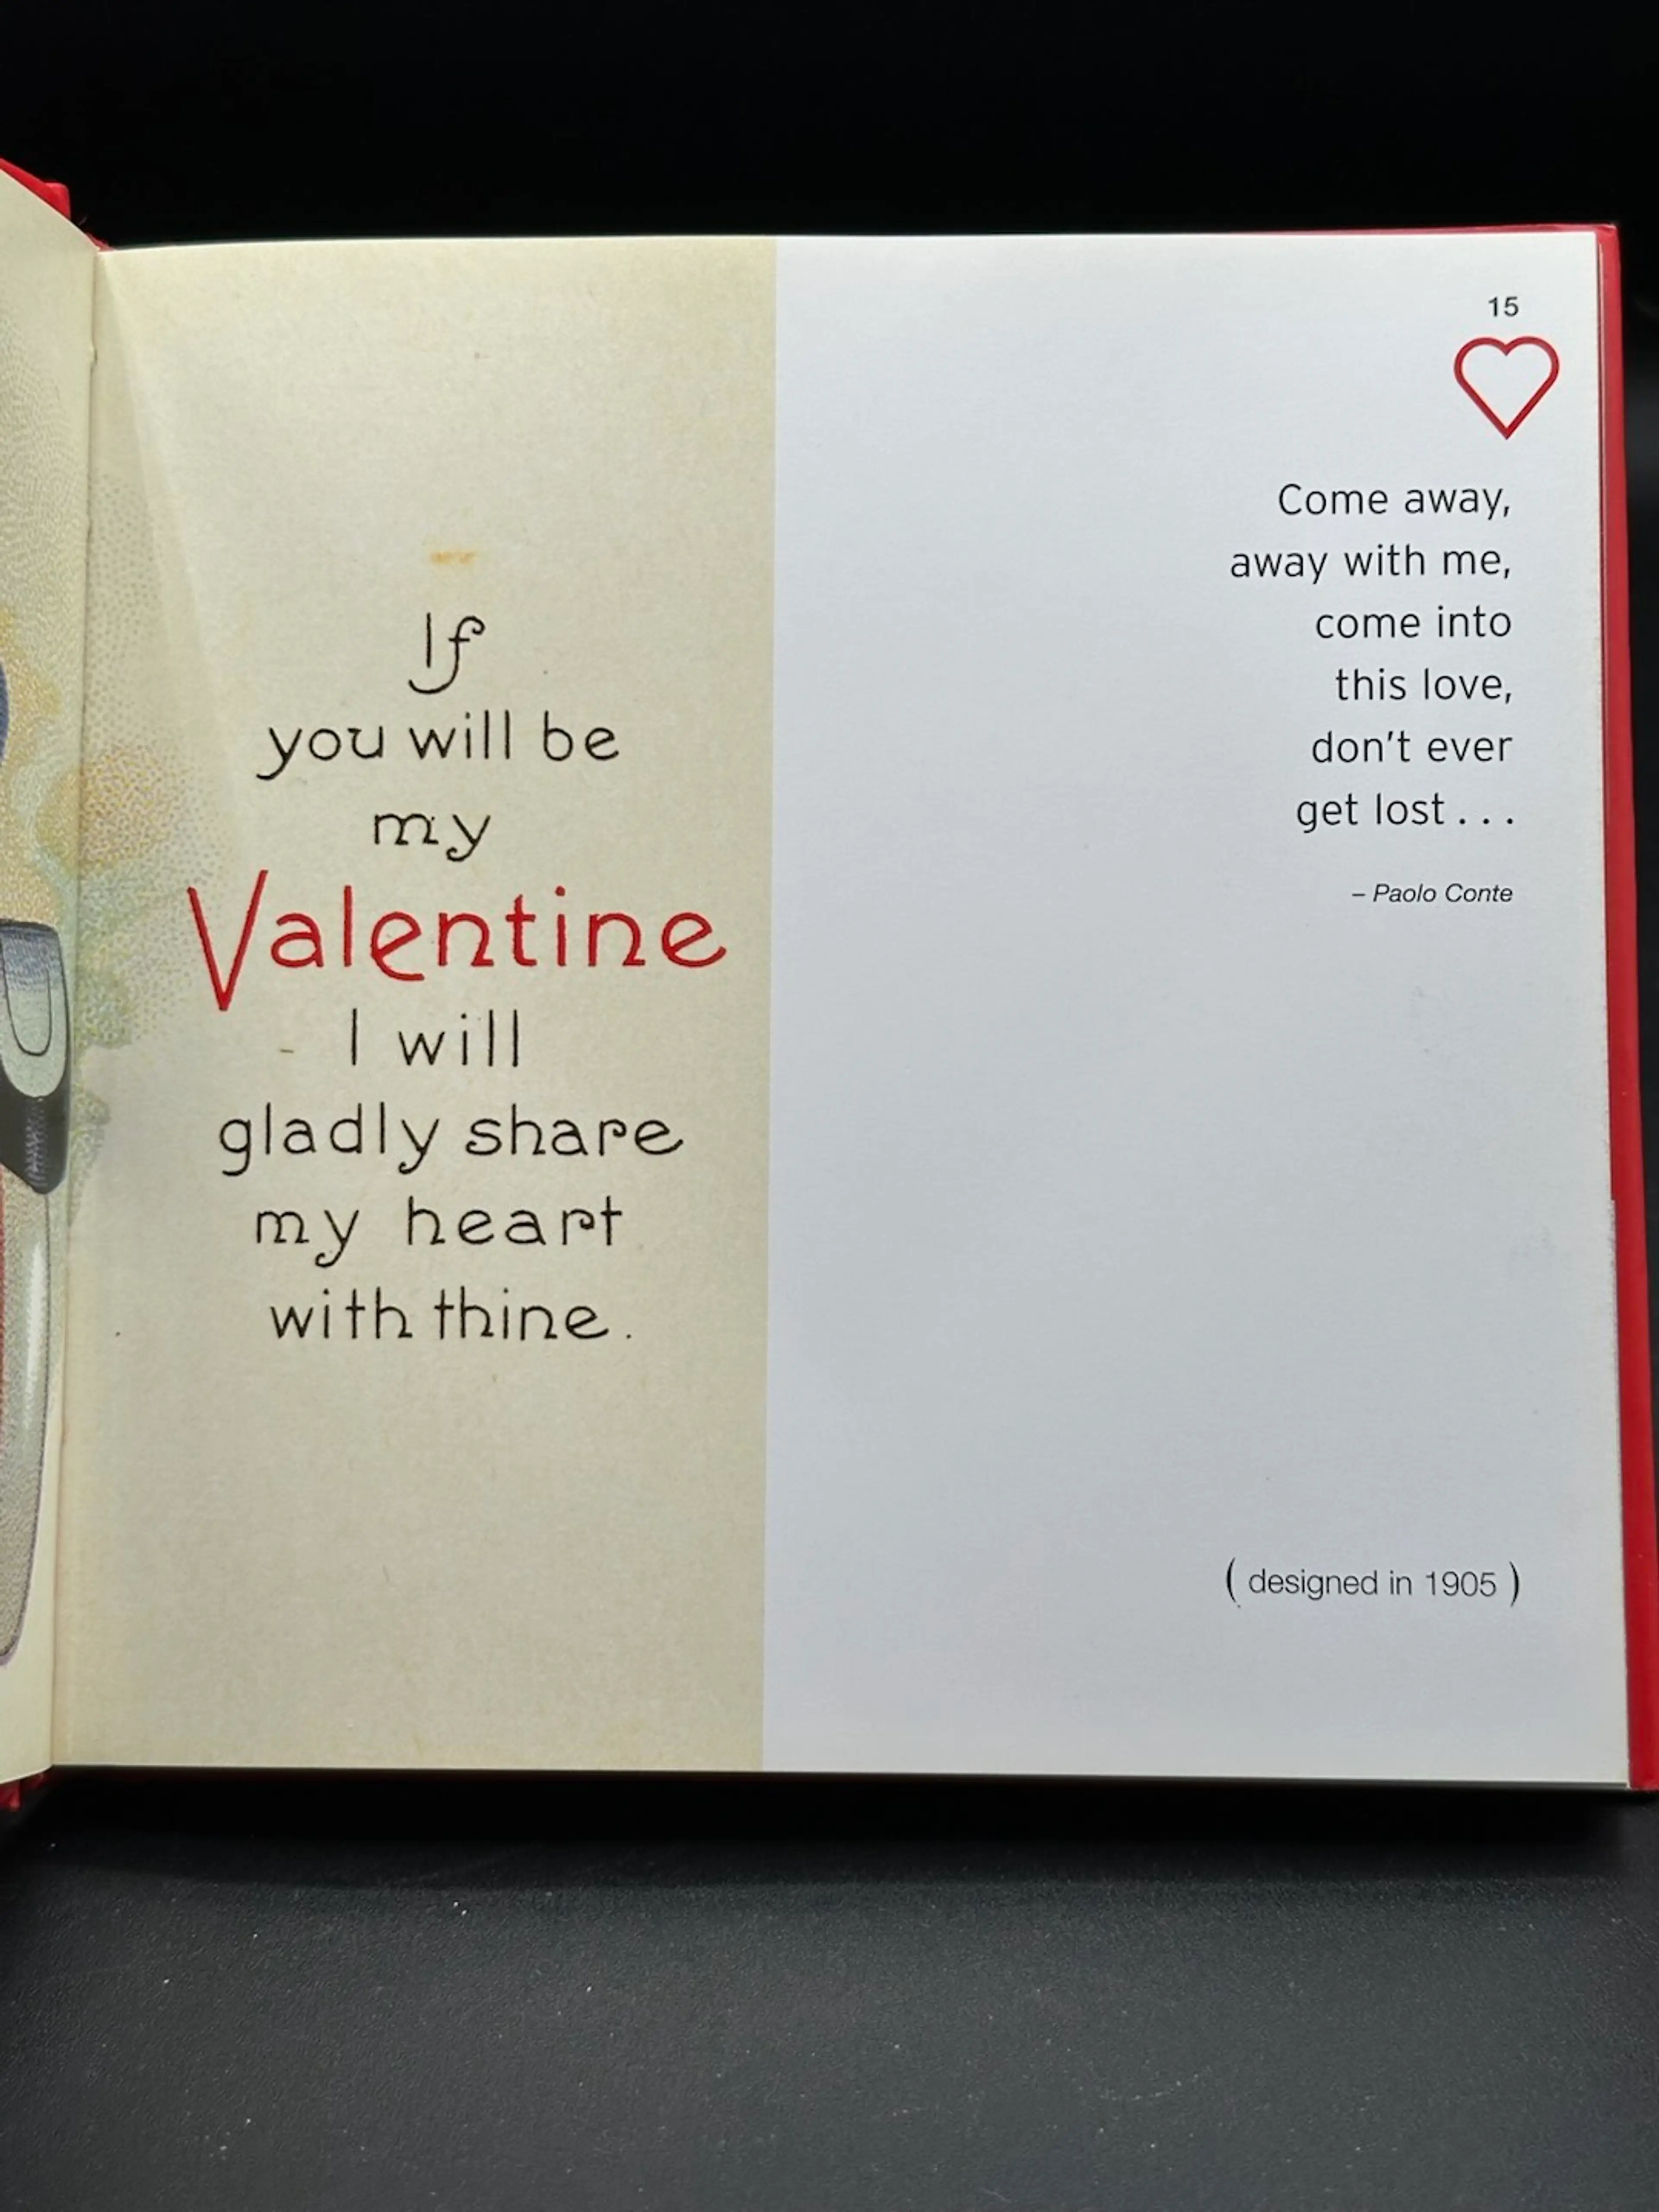 If
you will be
my
Valentine
I will
gladly share
my heart
with thine.
15
Come away,
away with me,
come into
this love,
don't ever
get lost . . .
– Paolo Conte
( designed in 1905 )